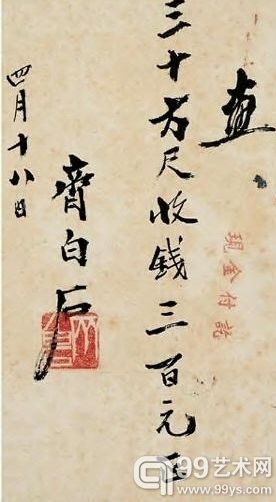 畫
現金付訖
三十方尺收錢三百元正
齊白石
四月十八日
99艺术网
www.99ys.com